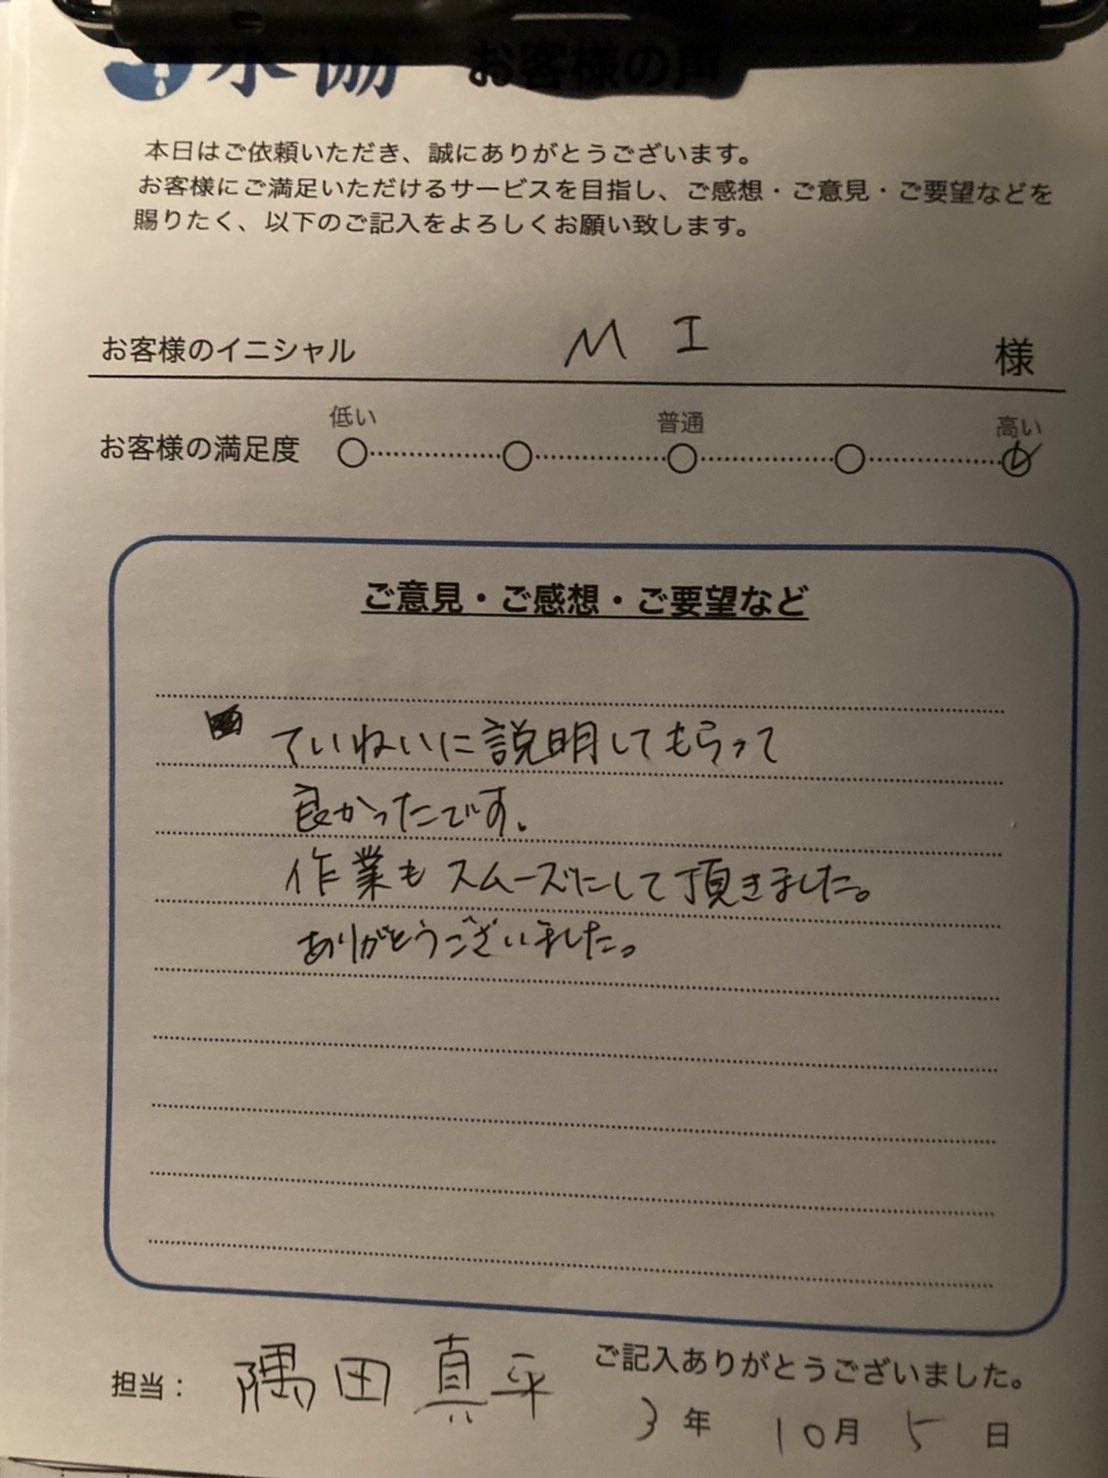 水協 お客様の声
本日はご依頼いただき、誠にありがとうございます。
お客様にご満足いただけるサービスを目指し、ご感想・ご意見・ご要望などを
賜りたく、以下のご記入をよろしくお願い致します。
お客様のイニシャル M I 様
低い 普通 高い
お客様の満足度
ご意見・ご感想・ご要望など
ていねいに説明してもらって
良かったです。
作業もスムーズにして頂きました。
ありがとうございました。
ご記入ありがとうございました。
担当: 隅田真平
3年 10月 5日